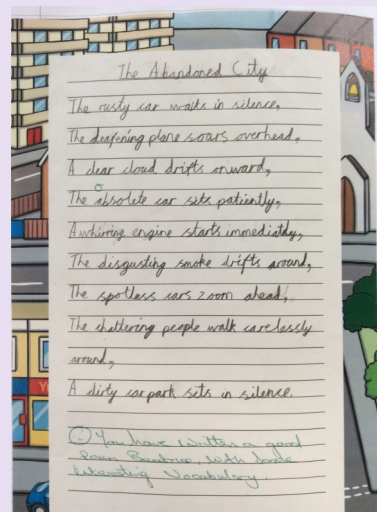 The Abandoned City
The rusty car waits in silence,
The deafening plane soars overhead,
A clear cloud drifts onward,
The absolite car sits patiently,
A whirring engine starts immediatly,
The disgusting smoke drifts around,
The spotless cars zoom ahead,
The chattering people walk carelessly
around,
A dirty carpark sits in silence.
You have written a good
Poem with some
interesting Vocabulary.